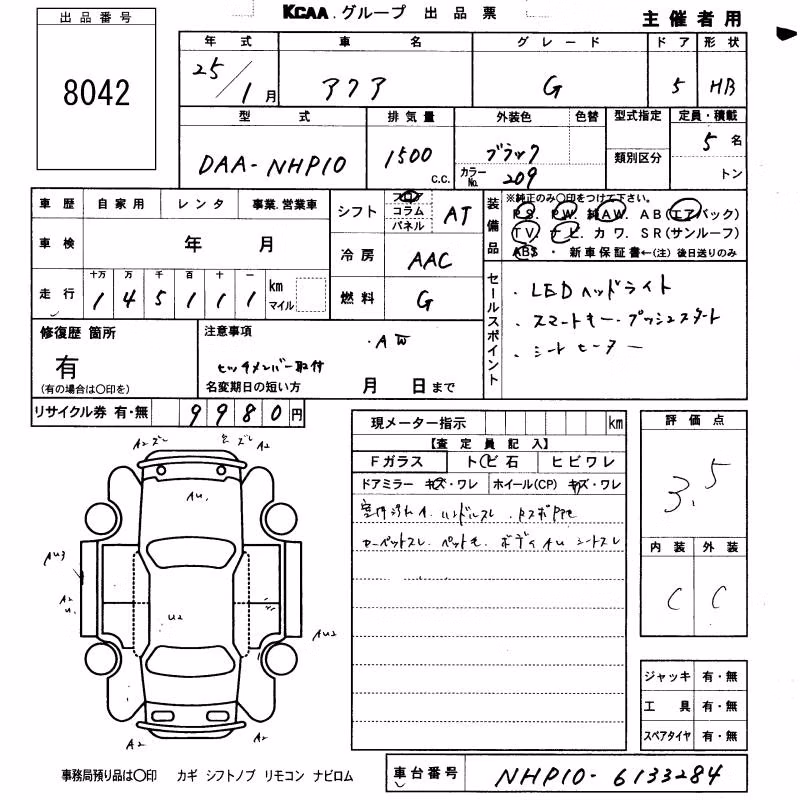 KCAA.グループ 出品票
主催者用
出品番号
8042
年式 車名 グレード ドア 形状
25/1月 アクア G 5 HB
型式 排気量 外装色 色替 型式指定 定員・積載
類別区分
DAA-NHP10 1500 c.c. ブラック カラーNo. 209 5名
トン
車歴 自家用 レンタ 事業.営業車
車検 年 月
走行 十万 万 千 百 十 一
1 4 5 1 1 1 km マイル
シフト フロア コラム パネル AT
冷房 AAC
燃料 G
装備品 ※純正のみ○印をつけて下さい。
PS. PW. 純AW. AB(エアバック)
TV. ナビ. カワ. SR(サンルーフ)
ABS ・ 新車保証書←(注) 後日送りのみ
セールスポイント
・LEDヘッドライト
・スマートキー・プッシュスタート
・シートヒーター
修復歴 箇所
有
(有の場合は○印を)
注意事項
・AW
ヒッチメンバー取付
名変期日の短い方 月 日まで
リサイクル券 有・無 9980円
現メーター指示 km
【査定員記入】
Fガラス トビ石 ヒビワレ
ドアミラー キズ・ワレ ホイール(CP) キズ・ワレ
ハンドルスレ
カーペットスレ ボディAU シートスレ
評価点
3.5
内装 外装
C C
ジャッキ 有・無
工具 有・無
スペアタイヤ 有・無
A2 ズレ ズレ A2
AU1
AU3
A2
U2
AU2
A2
A2
事務局預り品は○印 カギ シフトノブ リモコン ナビロム
車台番号 NHP10-6133284